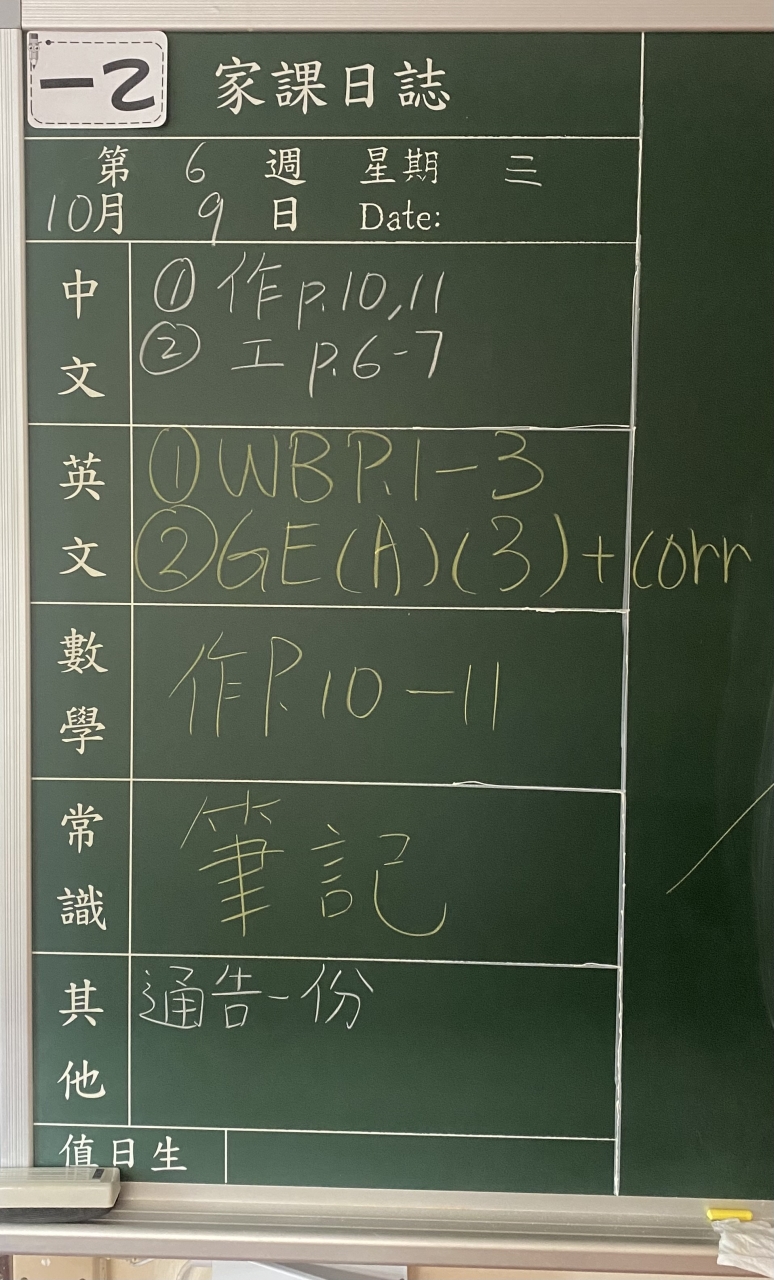 一乙
家課日誌
第 6 週 星期 三
10月 9 日 Date:
中文
① 作 p.10,11
② 工 p.6-7
英文
① WB P.1-3
② GE(A)(3)+corr
數學
作P.10-11
常識
筆記
其他
通告一份
值日生